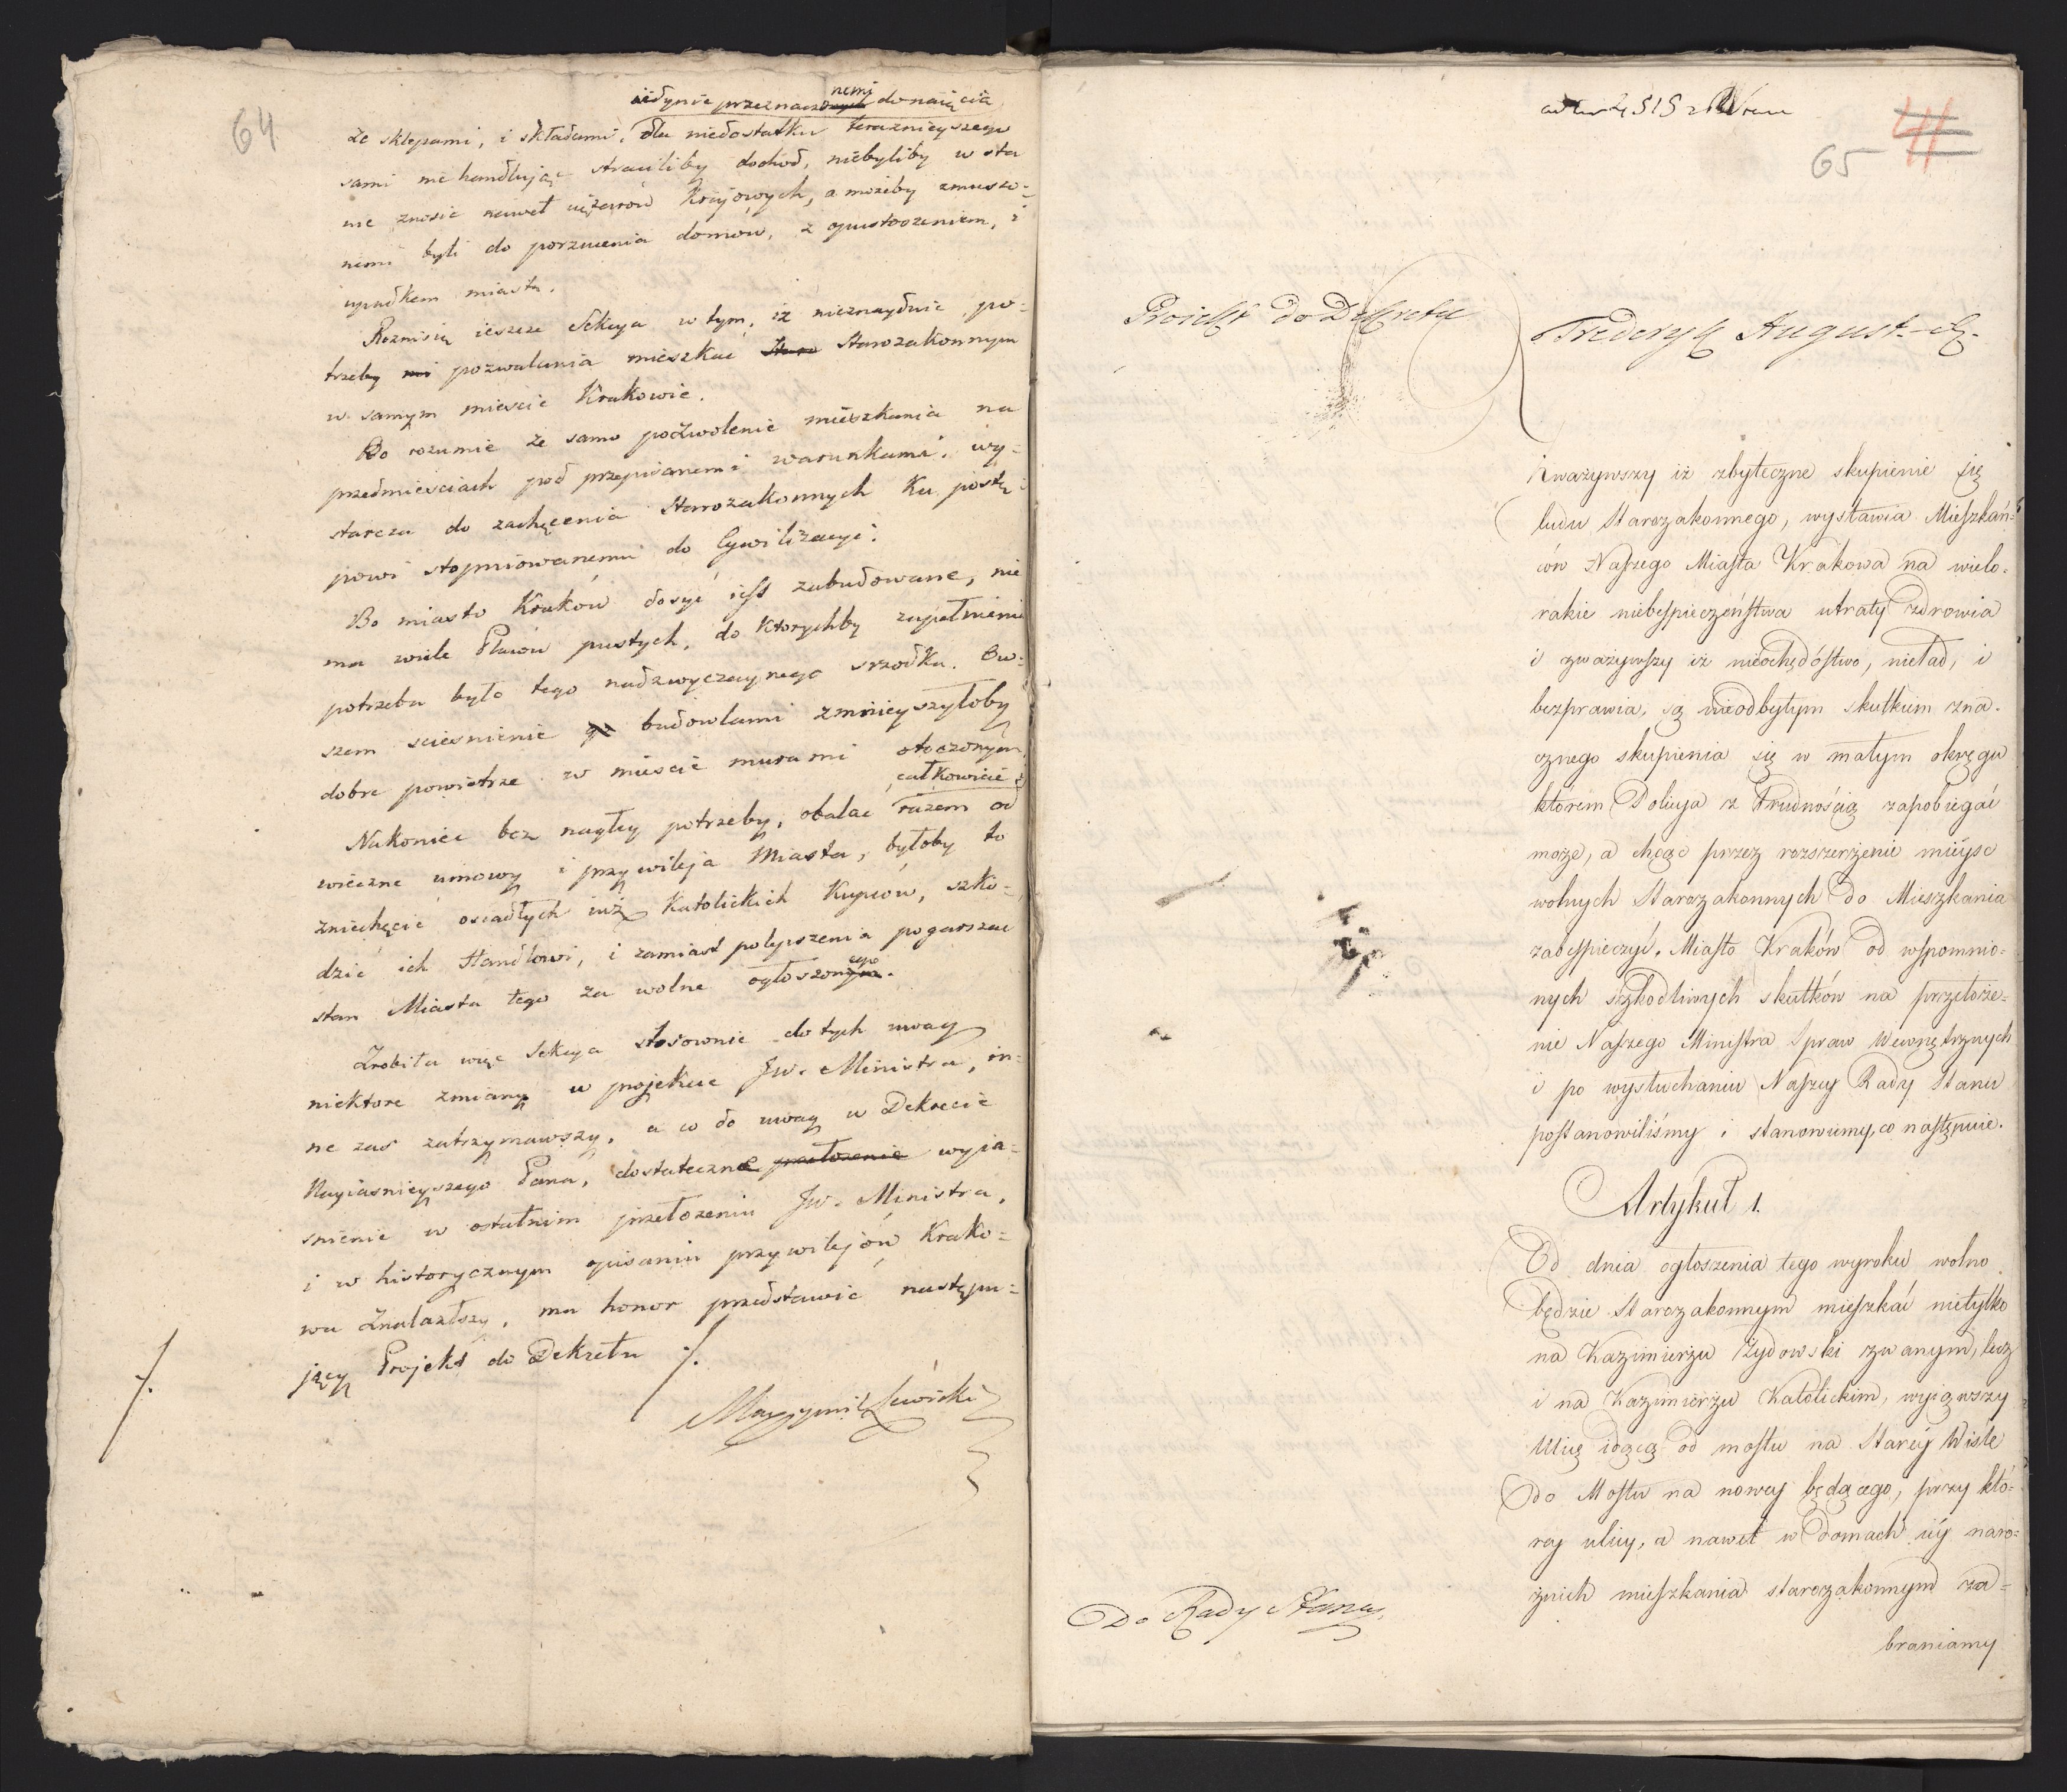 64
nemi
iedynie przeznaczonych do naięcia
ze sklepami, i składami, dla niedostatku teraznieyszego
sami nie handlując straciliby dochod, niebyliby w sta
nie znosic nawet cięzarów Krajowych, a możeby zmuszo-
nemi byli do porzucenia domow, z opustoszeniem, i
upadkem miasta.
Rozni się ieszcze Sekcya w tym, iż nieznayduie po-
trzeby ni pozwalania mieszkac Staro Starozakonnym
w samym miescie Krakowie.
Bo rozumie że samo pozwolenie mieszkania na
przedmiesciach pod przepisanemi warunkami, wy-
starcza do zachęcenia Starozakonnych Ku postę-
powi stopniowanemu do Cywilizacyi.
Bo miasto Kraków dosyć iest zabudowane, nie
ma wiele Placow pustych, do ktorychby zapełnienia
potrzeba było tego nadzwyczaynego srzodka. Ow-
szem sciesnienie budowlami zmnieyszyłoby
dobre powietrze w miescie murami otoczonym.
całkowicie
Nakoniec bez nagłey potrzeby, obalac razem od
wieczne umowy i przywileja Miasta, byłoby to
zniechęcić osiadłych iuż Katolickich Kupców, szko-
dzić ich Handlowi, i zamiast polepszenia pogarszac
stan Miasta tego za wolne ogłoszonego.
Zrobiła więc Sekcya stosownie do tych uwag
niektore zmiany w projekcie Jw. Ministra, in-
ne zas zatrzymawszy, a co do uwag w Dekrecie
Nayiasnieyszego Pana, dostateczne przełozenie wyia-
snienie w ostatnim przełozeniu Jw. Ministra,
i w historycznym opisaniu przywilejów Krako-
wa Znalazłszy, ma honor przedstawić nastepu-
jący Projekt do Dekretu ./.
./.
65
41
Proiekt do Dekretu
Fryderyk August etc.
Zważywszy iż zbyteczne skupienie się
ludu Starozakonnego, wystawia Mieszkań-
ców Naszego Miasta Krakowa na wielo-
rakie niebespieczeństwa utraty zdrowia
i zważywszy iż nieochędóstwo, nieład, i
bezprawia, są nieodbytym skutkiem zna-
cznego skupienia się w małym okręgu
którem Policya z Trudnością zapobiegać
może, a chcąc przez rozszerżenie mieysc
wolnych Starozakonnych do Mieszkania
zabespieczyć Miasto Kraków od wspomnio-
nych szkodliwych skutków na przełoże-
nie Naszego Ministra Spraw Wewnętrznych
i po wysłuchaniu Naszey Rady Stanu
postanowiliśmy i stanowiemy, co następuie.
Artykuł 1.
Od dnia ogłoszenia tego wyroku wolno
będzie Starozakonnym mieszkać nietylko
na Kazimierzu Żydowski zwanym, lecz
i na Kazimierzu Katolickim, wyiąwszy
Ulicę idącą od mostu na Starey Wiśle
do Mostu na nowey będącego, przy któ-
rey ulicy, a nawet w Domach iey naro-
żnich mieszkania starozakonnym za-
braniamy
Do Rady Stanu